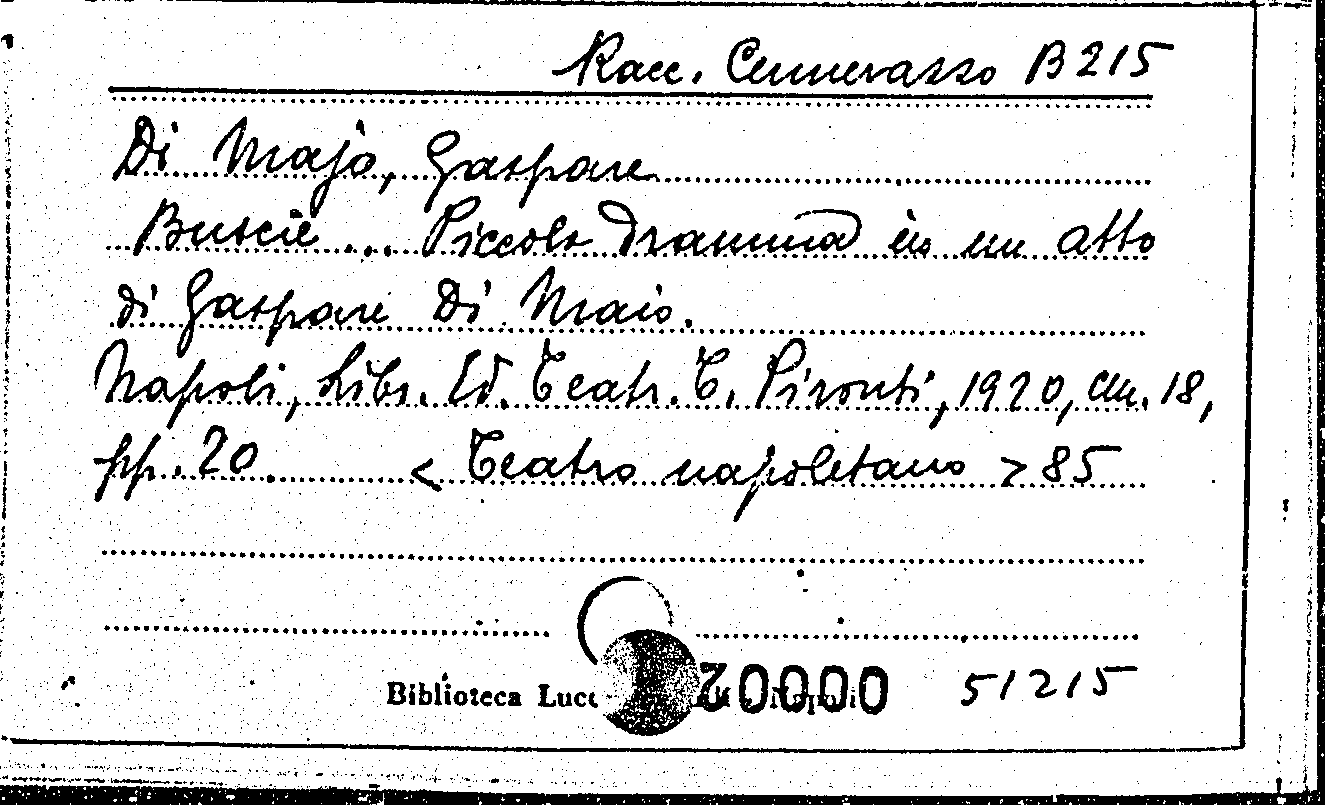 Racc. Cennerazzo B 215
Di Majo, Gaspare
Buscie ... Piccolo Dramma in un atto
di Gaspare Di Maio.
Napoli, Libr. Ed. Teatr. T. Pironti, 1920, cm. 18,
pp. 20. < Teatro napoletano > 85
Biblioteca Lucc 20000 51215